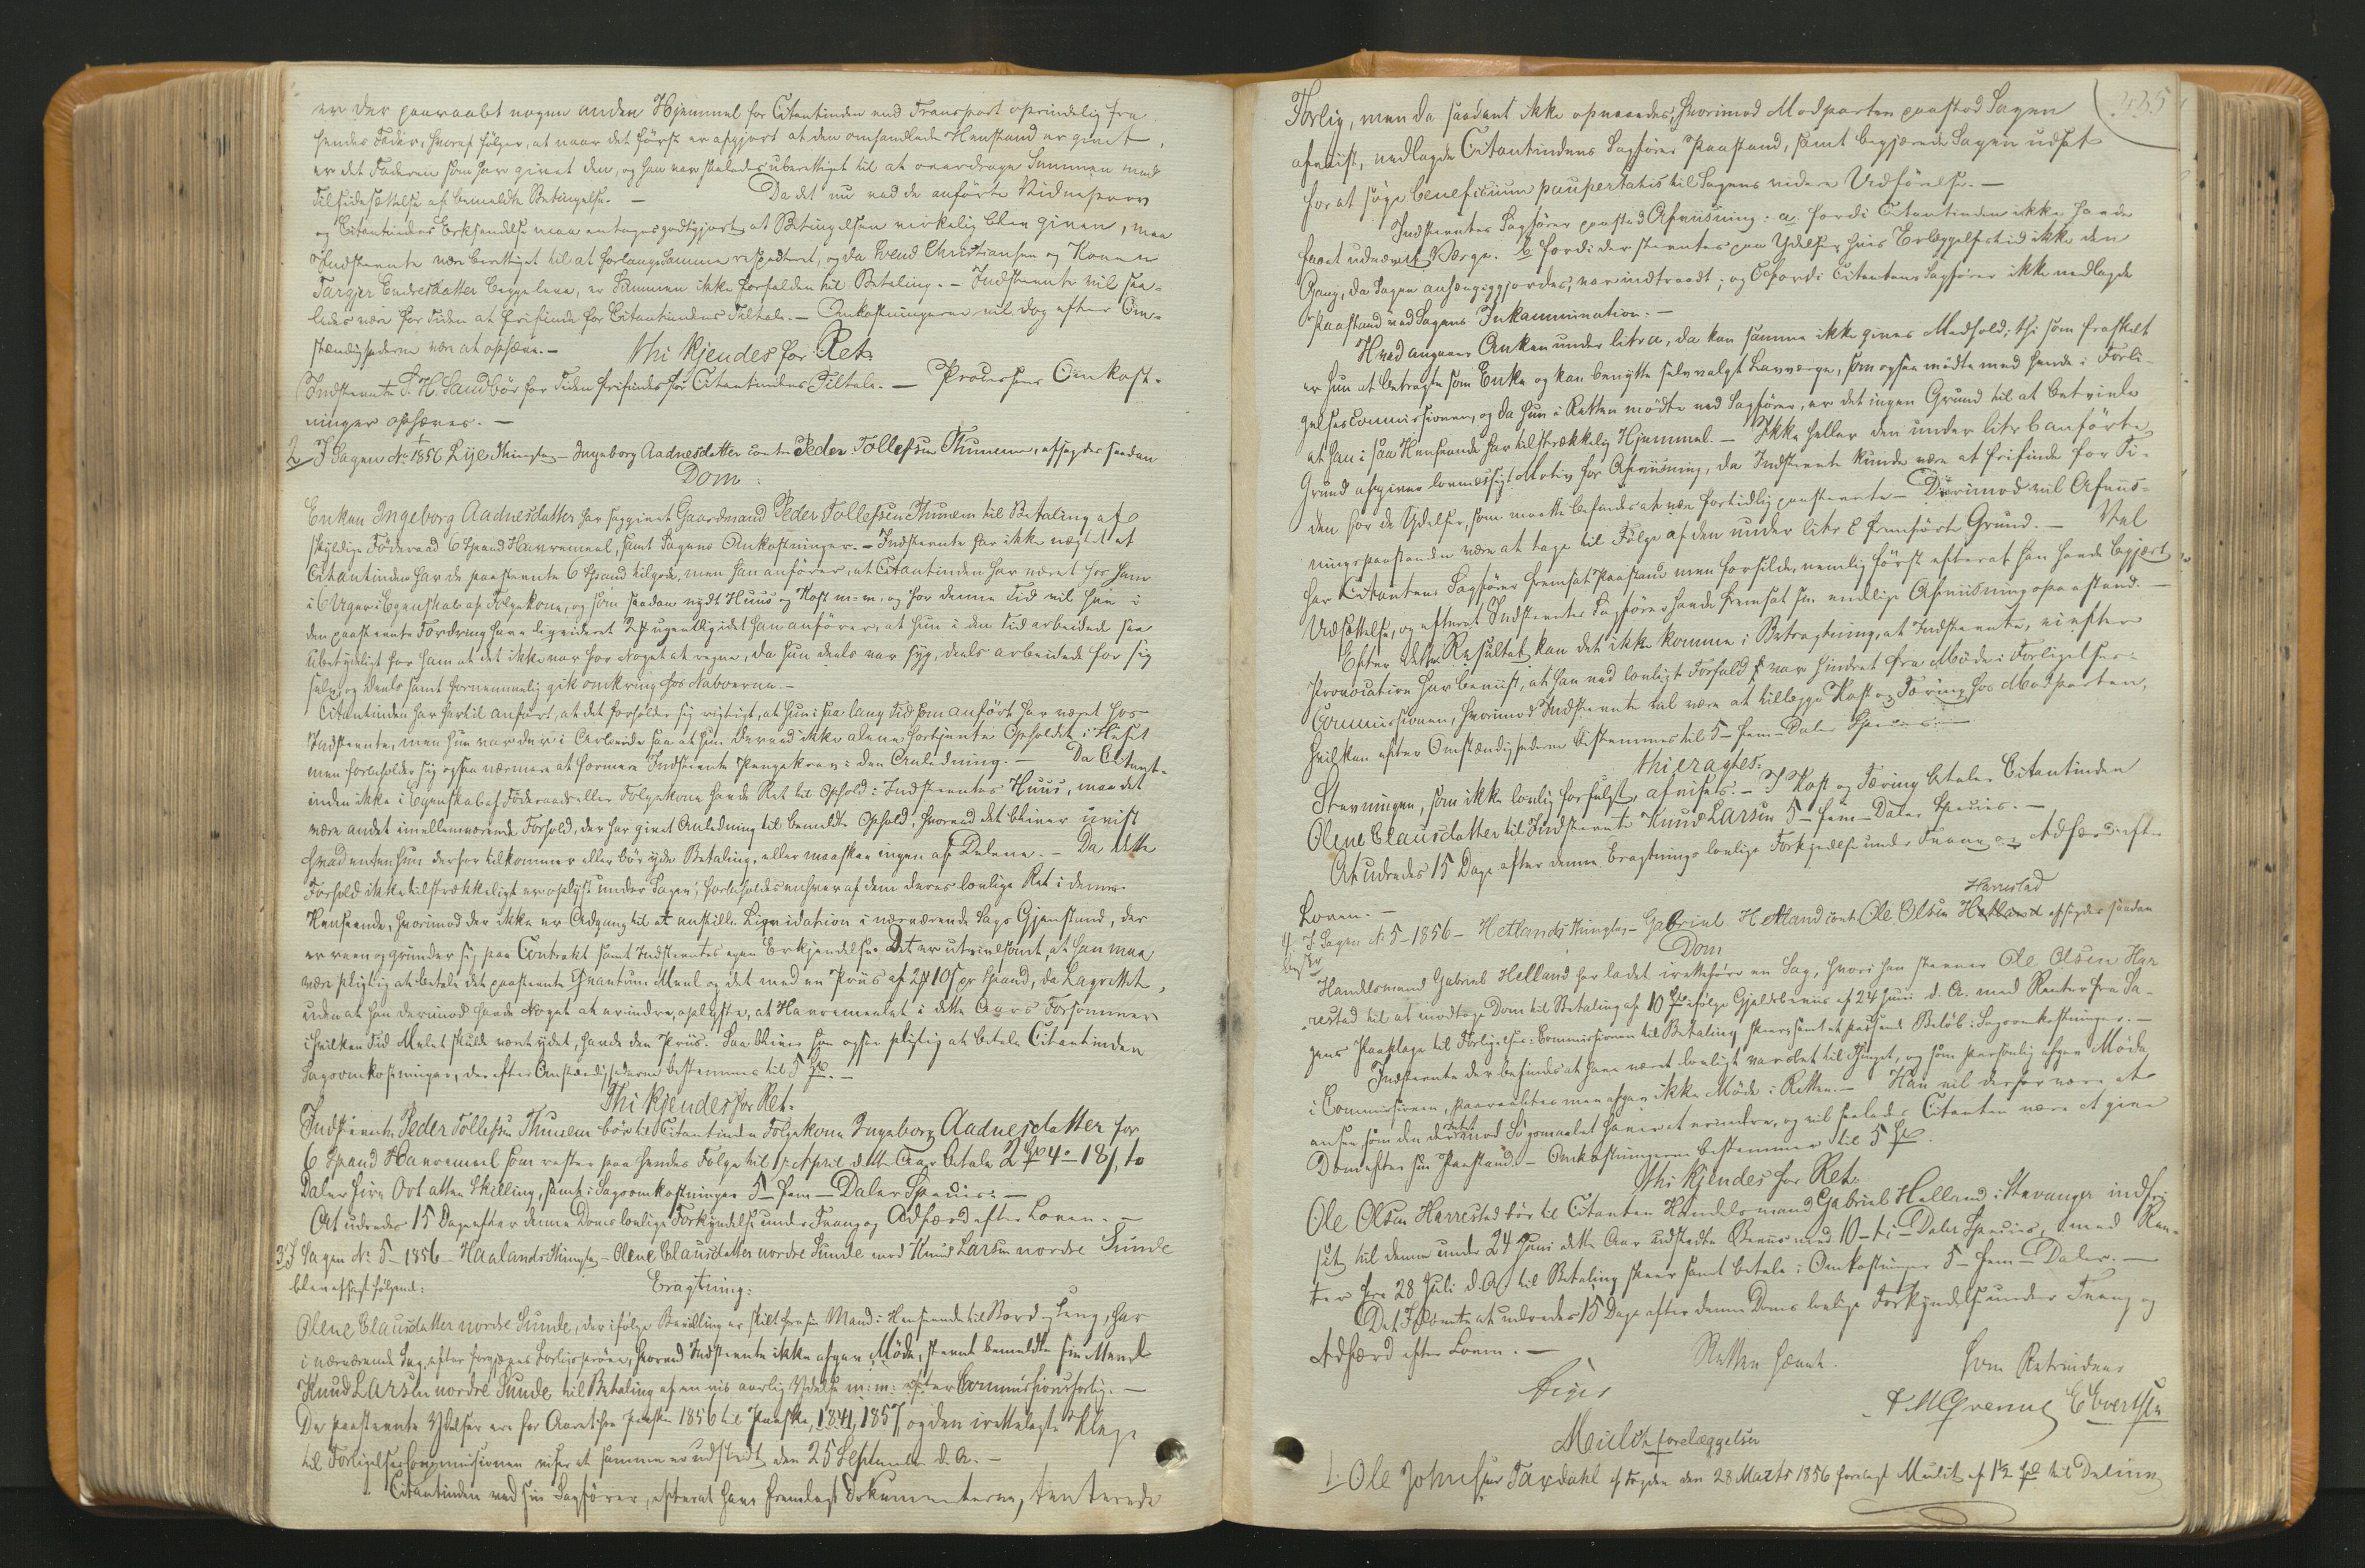 er der paaraabt nogen anden Hjemmel for Citantinden end Transport oprindelig fra
hendes Fader, hvoraf følger, at naar det først er afgjort at den omhandlede Henstand er givet,
er det Faderen som har givet den, og han var saaledes uberettiget til at overdrage Summen med
Tilsidesættelse af bemeldte Betingelse. — Da det nu ved de anførte Vidneprov
og Citantindens Erkjendelse maa antages godtgjort at Betingelsen virkelig blev given, maa
Indstevnte være berettiget til at forlange samme respecteret, og da Svend Christiansen og Konen
Targjer Endresdatter begge leve, er Summen ikke forfalden til Betaling. — Indstevnte vil saa-
ledes være for Tiden at frifinde for Citantindens Tiltale. — Omkostningerne vil dog efter Om-
stændighederne være at ophæve. —
Thi kjendes for Ret:
Indstevnte T. H. Sandbør for Tiden frifindes for Citantindens Tiltale. — Processens Omkost-
ninger ophæves. —
2 I Sagen No 1 1856 Lye Thinglag — Ingeborg Aadnesdatter contra Peder Tollefsen Thunem, afsagdes saadan
Dom:
Enken Ingeborg Aadnesdatter har sagsøgt Gaardmand Peder Tollefsen Thunem til Betaling af
skyldige Føderaad 6 Spand Havremeel, samt Sagens Omkostninger. — Indstevnte har ikke nægtet at
Citantinden har de paastevnte 6 Spand tilgode, men han anfører, at Citantinden har været hos ham
i 6 Uger i Egenskab af Følgekone, og som saadan nydt Huus og Kost m: m:, og for denne Tid vil han i
den paastevnte Fordring have liqvideret ugentlig idet han anfører, at hun i den Tid arbeidede saa
ubetydeligt for ham at det ikke var for Noget at regne, da hun deels var syg, deels arbeidede for sig
selv, og deels samt fornemmelig gik omkring hos Naboerne. —
Citantinden har hertil anført, at det forholder sig rigtigt, at hun i saa lang Tid som anført har været hos
Indstevnte, men hun var der i Arbeide saa at hun derved ikke alene fortjente Opholdet i Huset
men forbeholder sig ogsaa nærmere at formere Indstevnte Pengekrav i den Anledning. — Da Citant-
inden ikke i Egenskab af Føderaads eller Følgekone havde Ret til Ophold i Indstevntes Huus, maa det
være andet imellemværende Forhold, der har givet Anledning til bemeldte Ophold, hvorved det bliver uvist
hvad enten hun derfor tilkommer eller bør yde Betaling, eller maaskee ingen af Delene. — Da dette
Forhold ikke tilstrækkeligt er oplyst under Sagen, forbeholdes enhver af dem deres lovlige Ret i denne
Henseende, hvorimod der ikke er Adgang til at anstille Liqvidation i nærværende Sags Gjenstand, der
er reen og grunder sig paa Contract samt Indstevntes egen Erkjendelse. Det er utvivlsomt, at han maa
være pligtig at betale det paastevnte Qvantum Meel og det med en Priis af 2 10 ß pr Spand, da Lagrettet,
uden at han derimod havde Noget at erindre, oplyste, at Havremeelet i dette Aars Forsommer
i hvilken Tid Melet skulde været ydet, havde den Priis. Saa bliver han ogsaa pligtig at betale Citantinden
Sagsomkostninger, der efter Omstændighederne bestemmes til 5 Spd. —
Thi kjendes for Ret:
Indstevnte Peder Tollefsen Thunem bør til Citantinden Følgekone Ingeborg Aadnesdatter for
6 Spand Havremeel som rester paa hendes Følge til 1ste April dette Aar betale 2 Spd 4 — 18 ß, to
Daler fire Ort atten Skilling, samt i Sagsomkostninger 5 — fem — Daler Species. —
At udredes 15 Dage efter denne Doms lovlige Forkyndelse under Tvang og Adfærd efter Loven. —
3 I Sagen No 5 — 1856 — Haalands Thinglag — Olene Clausdatter nordre Sunde mod Knud Larsen nordre Sunde
blev afsagt følgende:
Eragtning:
Olene Clausdatter nordre Sunde, der ifølge Bevilling er skilt fra sin Mand i Henseende til Bord og Seng, har
i nærværende Sag, efter forgjæves Forligsprøve, hvorved Indstevnte ikke afgav Møde, stevnt bemeldte sin Mand
Knud Larsen nordre Sunde til Betaling af en vis aarlig Ydelse m: m: efter Commissionsforlig. —
De paastevnte Ydelser ere for Aaret fra Paaske 1856 til Paaske 1857, og den irettelagte Klage
til Forligelsescommissionen viser at samme er udstedt den 25 September d. A. —
Citantinden ved sin Sagfører, efterat have fremlagt Dokumenterne, tenterede
235
Forlig, men da saadant ikke opnaaedes, hvorimod Modparten paastod Sagen
afviist, nedlagde Citantindens Sagfører Paastand, samt begjærede Sagen udsat
for at søge beneficium paupertatis til Sagens videre Udførelse. —
Indstevntes Sagfører paastod Afviisning: a fordi Citantinden ikke havde
havt udnævnt Værge. b fordi der stevntes paa Ydelser, hvis Erlæggelsestid ikke den
Gang, da Sagen anhængiggjordes, var indtraadt; og c fordi Citantens Sagfører ikke nedlagde
Paastand ved Sagens Inkammination. —
Hvad angaaer Anken under litra a, da kan samme ikke gives Medhold; thi som fraskilt
er hun at betragte som Enke og kan benytte selvvalgt Lavværge, som ogsaa mødte med hende i Forli-
gelsescommissionen, og da hun i Retten mødte ved Sagfører, er det ingen Grund til at betvivle
at han i saa Henseende har tilstrækkelig Hjemmel. — Ikke heller den under litr b anførte
Grund afgiver lovmæssigt Motiv for Afviisning, da Indstevnte kunde være at frifinde for Ti-
den for de Ydelser, som maatte befindes at være fortidlig paastevnte — Derimod vil Afviis-
ningspaastanden være at tage til Følge af den under litr c fremførte Grund. — Vel
har Citantens Sagfører fremsat Paastand men forsilde, nemlig først efterat han havde begjært
Udsættelse, og efterat Indstevntes Sagfører havde fremsat sin endelige Afviisningspaastand. —
Efter dette Resultat kan det ikke komme i Betragtning, at Indstevnte, ei efter
Provocation har beviist, at han ved lovligt Forfald var hindret fra Møde i Forligelses-
Commissionen, hvorimod Indstevnte vil være at tillægge Kost og Tæring hos Modparten,
hvilken efter Omstændighederne bestemmes til 5 — fem — Daler Species. —
Thi eragtes:
Stevningen, som ikke lovlig forfulgt, afvises. — I Kost og Tæring betaler Citantinden
Olene Clausdatter til Indstevnte Knud Larsen 5 — fem — Daler Species. —
At udredes 15 Dage efter denne Eragtnings lovlige Forkyndelse under Tvang og Adfærd efter
Loven. —
4. I Sagen No 5 — 1856 — Hetlands Thinglag — Gabriel Helland contra Ole Olsen Harrestad afsagdes saadan
Dom
Handelsmand Gabriel Helland har ladet iretteføre en Sag, hvori han stevner Ole Olsen Har-
restad til at modtage Dom til Betaling af 10 Spd ifølge Gjeldsbeviis af 24 Juni d. A. med Renter fra Sa-
gens Paaklage til Forligelses-Commissionen til Betaling skeer, samt et passende Beløb i Sagsomkostninger. —
Indstevnte der befindes at have været lovligt varslet til Thinget, og som personlig afgav Møde
i Commissionen, paaraabtes men afgav ikke Møde i Retten. — Han vil derfor være at
ansee som den der Intet mod Søgsmaalet havde at erindre, og vil saaledes Citanten være at give
Dom efter sin Paastand. — Omkostningerne bestemmes til 5 Spd.
Thi kjendes for Ret:
Ole Olsen Harrestad bør til Citanten Handelsmand Gabriel Helland i Stavanger indfri
sit til denne under 24 Juni dette Aar udstedte Beviis med 10 — ti — Daler Species, med Ren-
ter fra 28 Juli d. A. til Betaling skeer samt betale i Omkostninger 5 — fem — Daler. —
Det Idømte at udredes 15 Dage efter denne Doms lovlige Forkyndelse under Tvang og
Adfærd efter Loven. —
Retten hævet.
Som Retsvidner
E Evertsen
Mulctforelæggelser
1. Ole Johnsen Taxdahl af Fogden den 28 Marts 1856 forelagt Mulct af 1½ Spd til Deling